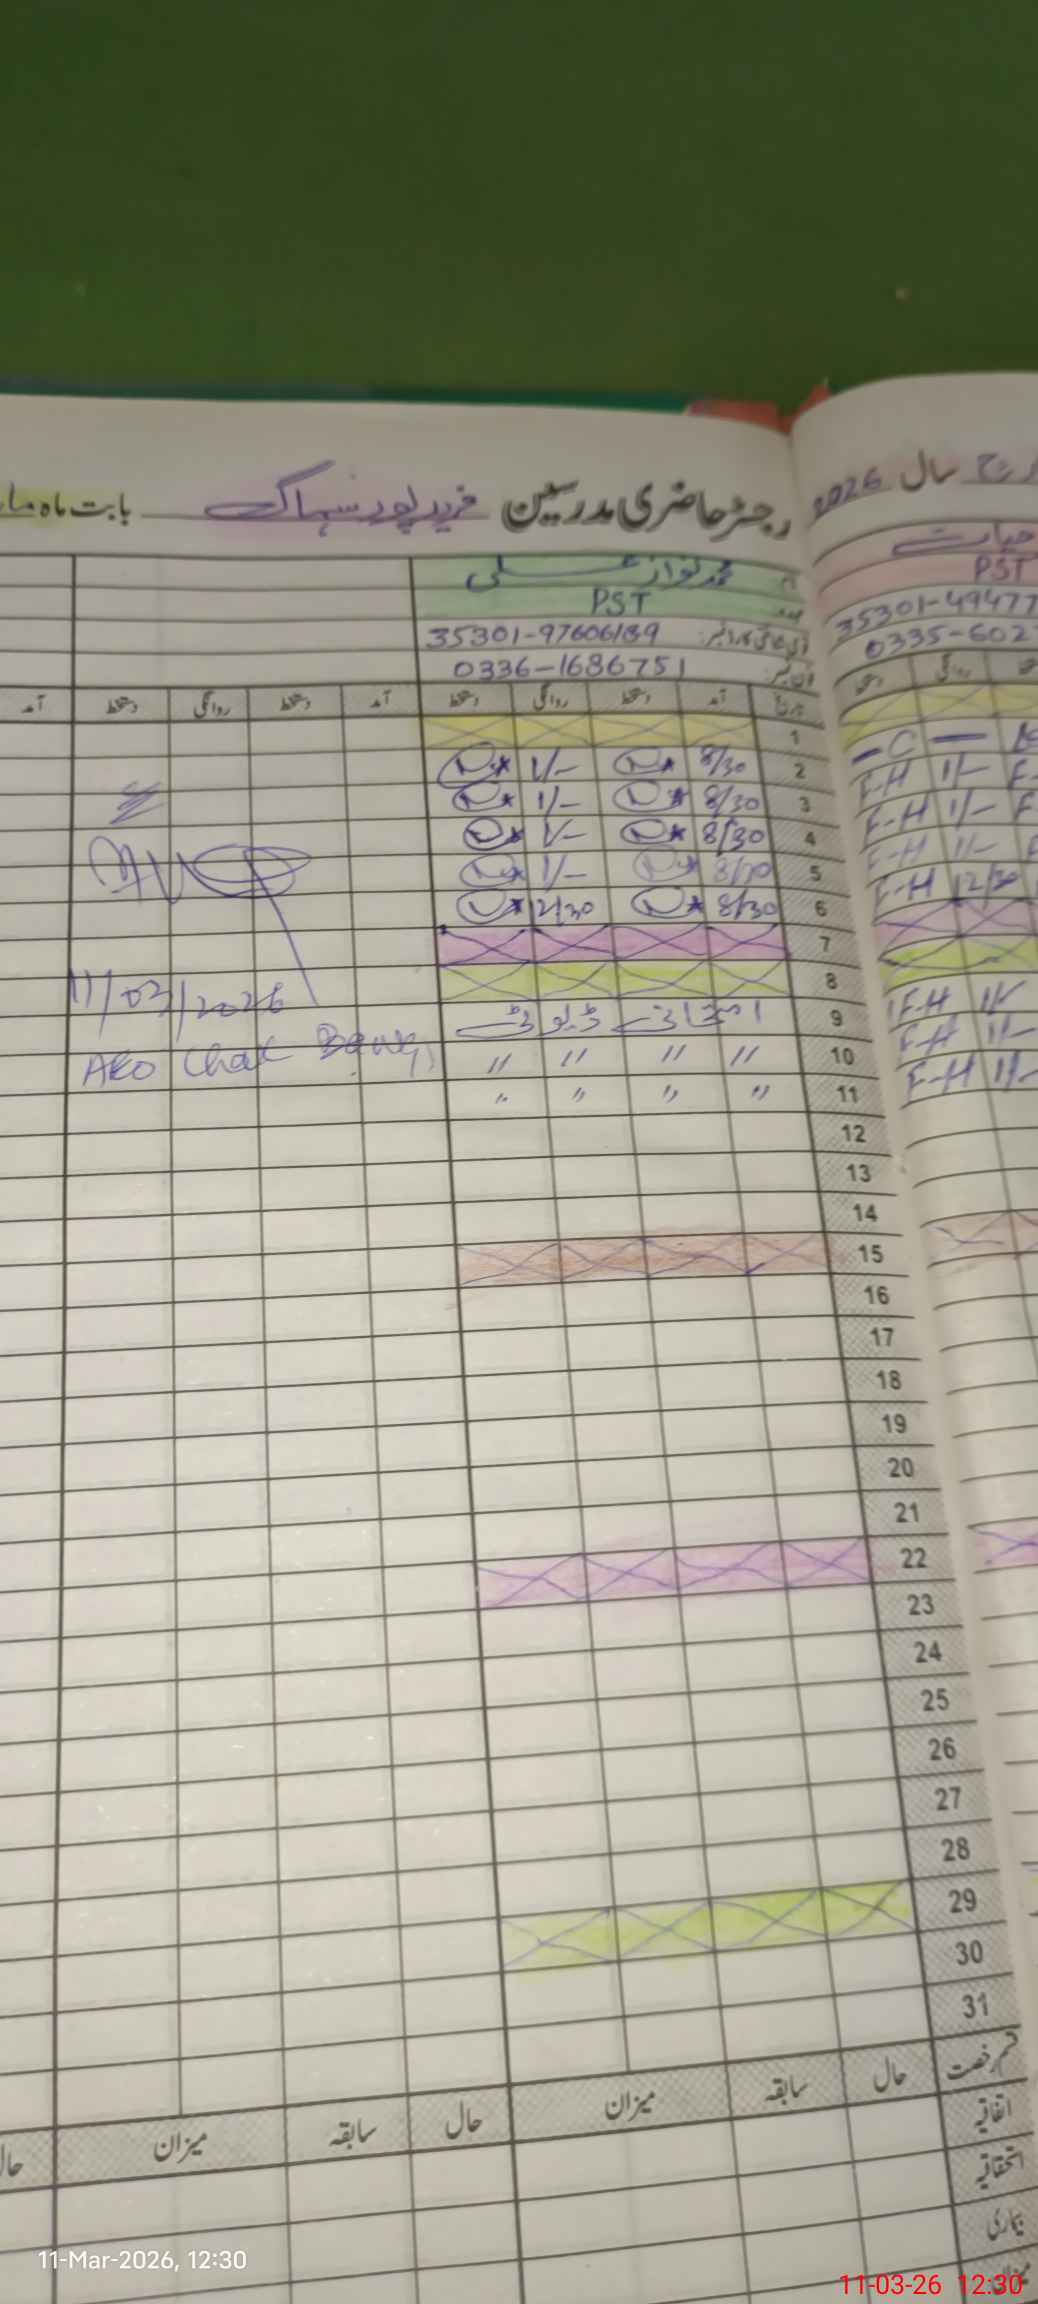 رجسٹر حاضری مدرسین فرید پور سہاگ بابت ماہ
سال 2026
نام محمد نواز علی
عہدہ PST
شناختی کارڈ نمبر 35301-97606189
فون نمبر 0336-1686751
PST
35301-49477
0335-602
تاریخ آمد دستخط روانگی دستخط آمد دستخط روانگی دستخط آمد
روانگی دستخط
1
2 8/30 1/-
3 8/30 1/-
4 8/30 1/-
5 8/30 1/-
6 8/30 12/30
7
8
9 امتحانی ڈیوٹی
10 〃 〃 〃 〃
11 〃 〃 〃 〃
12
13
14
15
16
17
18
19
20
21
22
23
24
25
26
27
28
29
30
31
C
F-H 1/-
F-H 1/-
F-H 1/-
F-H 12/30
F-H 1/-
F-H 1/-
F-H 1/-
11/03/2026
AEO Chak
قسم رخصت حال سابقہ میزان حال سابقہ میزان حال
اتفاقیہ
استحقاقیہ
بیماری
میزان
11-Mar-2026, 12:30
11-03-26 12:30